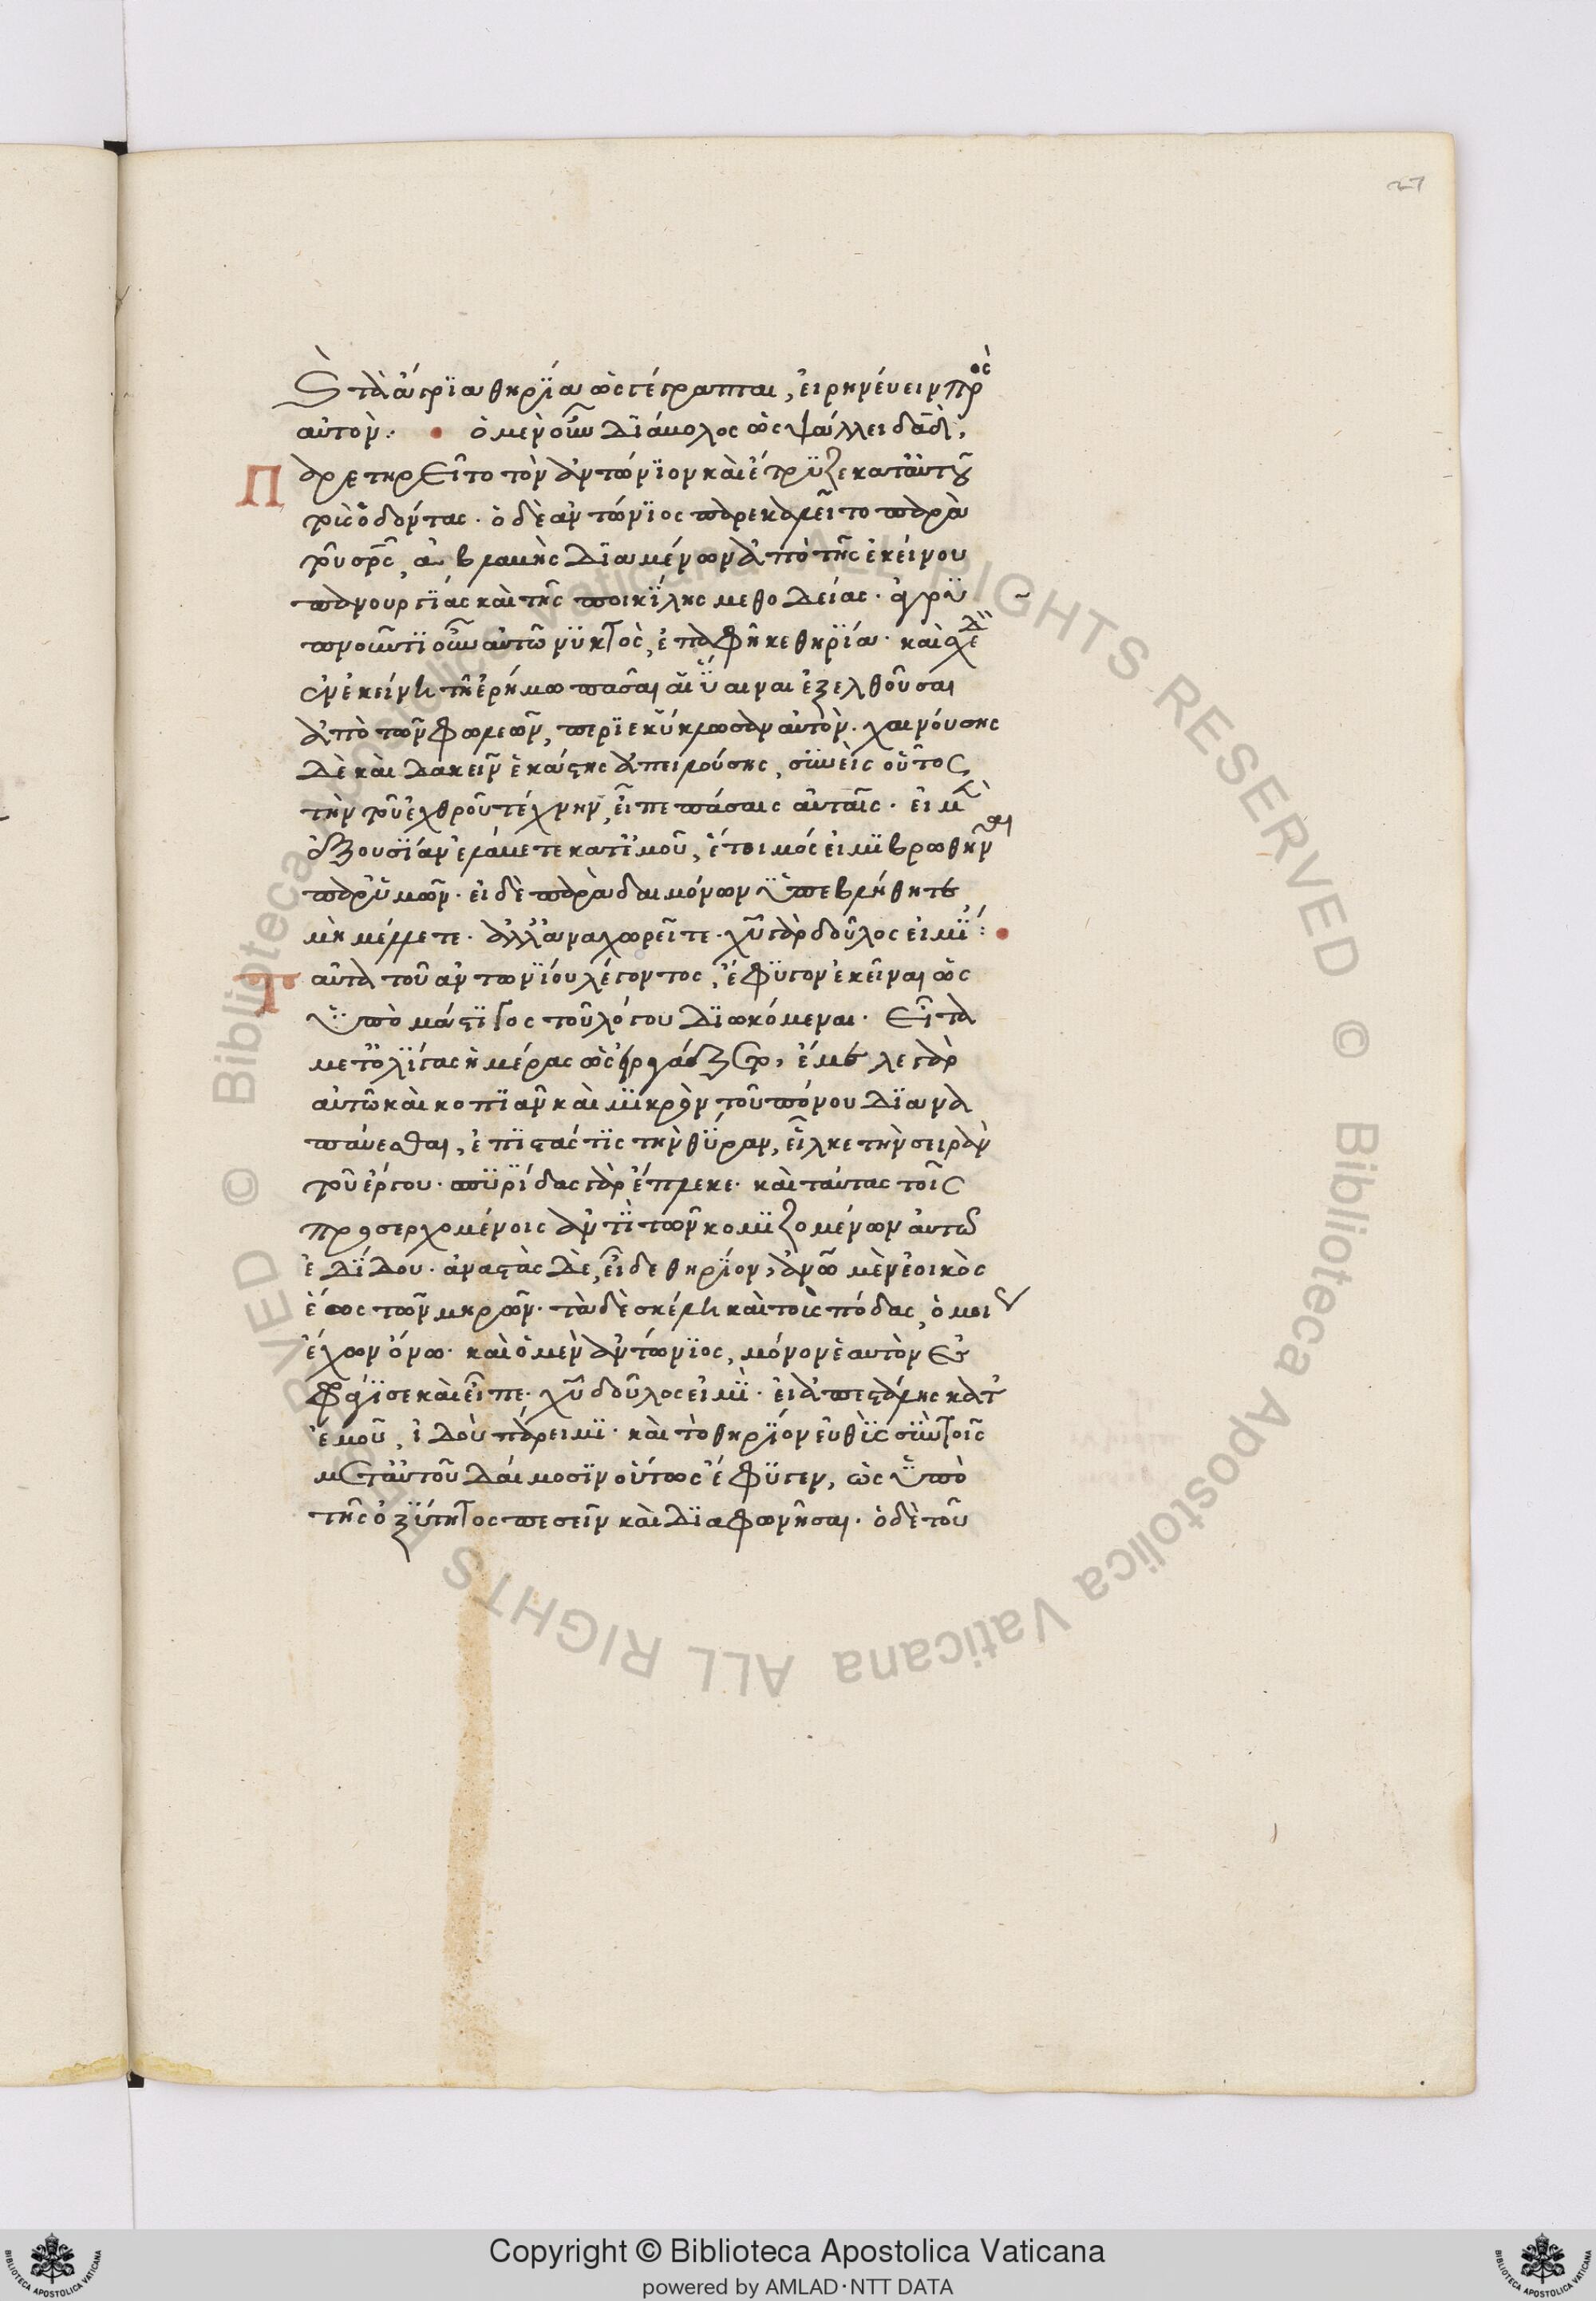 27
καὶ τὰ ἄγρια θηρία ὡς γέγραπται, εἰρηνεύειν πρὸς
αὐτόν: ὁ μὲν οὖν διάβολος ὡς ψάλλει δᾱδ,
Παρετηρεῖτο τὸν ἀντώνϊον καὶ ἔτρϋζε κατ' αὐτοῦ
τοὺς ὀδόντας. ὁ δὲ ἀντώνϊος παρεκαλεῖτο παρὰ
τοῦ σρ̄ς, ἀβλαβὴς διαμένων ἀπὸ τῆς ἐκείνου
πανουργΐας καὶ τῆς ποικΐλης μεθοδείας. ἀγρυ
πνοῦντι οὖν αὐτῶ νϋκτὸς, ἐπαφῆκε θηρΐα. καὶ σχεδὸν
ἐν ἐκείνη τῆ ἐρήμω πᾶσαι αἱ ὕαιναι ἐξελθοῦσαι
ἀπὸ τῶν φωλεῶν, περϊεκύκλωσαν αὐτόν. χαινούσης
δὲ καὶ δακεῖν ἑκάστης ἀπειλούσης, συνεὶς οὗτος
τὴν τοῦ ἐχθροῦ τέχνην, εἶπε πάσαις αὐταῖς. εἰ μὲν
ἐξουσΐαν ἐλάβετε κατ' ἐμοῦ, ἕτοιμός εἰμι βρωθῆναι
παρ' ὑμῶν. εἰ δὲ παρὰ δαιμόνων ὑπεβλήθητε,
μὴ μέλλετε. ἀλλ' ἀναχωρεῖτε. χ̄ῡ γὰρ δοῦλος εἰμΐ:
Ταῦτα τοῦ ἀντωνΐου λέγοντος, ἔφϋγον ἐκεῖναι ὡς
ὑπὸ μάστϊγος τοῦ λόγου διωκόμεναι. Εἶτα
μετ' ὀλΐγας ἡμέρας ὡς εἰργάζετο, ἔμελε γὰρ
αὐτῶ καὶ κοπιᾶν καὶ μικρὸν τοῦ πόνου διανα
παύεσθαι, ἐπιστάς τις τὴν θύραν, εἷλκε τὴν σειρὰν
τοῦ ἔργου. σπϋρΐδας γὰρ ἔπλεκε. καὶ ταύτας τοῖς
προσερχομένοις ἀντὶ τῶν κομιζομένων αὐτῶ
ἐδΐδου. ἀναστὰς δὲ, εἶδε θηρΐον, ἀνῶ μὲν ἐοικὸς
ἕως τῶν μηρῶν. τὰ δὲ σκέλη καὶ τοὺς πόδας, ὅμοια
ἔχων ὄνω. καὶ ὁ μὲν ἀντώνϊος, μόνον ἑαυτὸν ἐ
σφράγϊσε καὶ εἶπε. χ̄ῡ δοῦλος εἰμΐ. εἰ ἀπεστάλης κατ'
ἐμοῦ, ἰδοὺ πάρειμι. καὶ τὸ θηρΐον εὐθὺς σὺν τοῖς
μετ' αὐτοῦ δαίμοσϊν οὕτως ἔφϋγεν, ὡς ὑπὸ
τῆς ὀξύτητος πεσεῖν καὶ διαφωνῆσαι. ὁ δὲ τοῦ
Copyright © Biblioteca Apostolica Vaticana
powered by AMLAD·NTT DATA